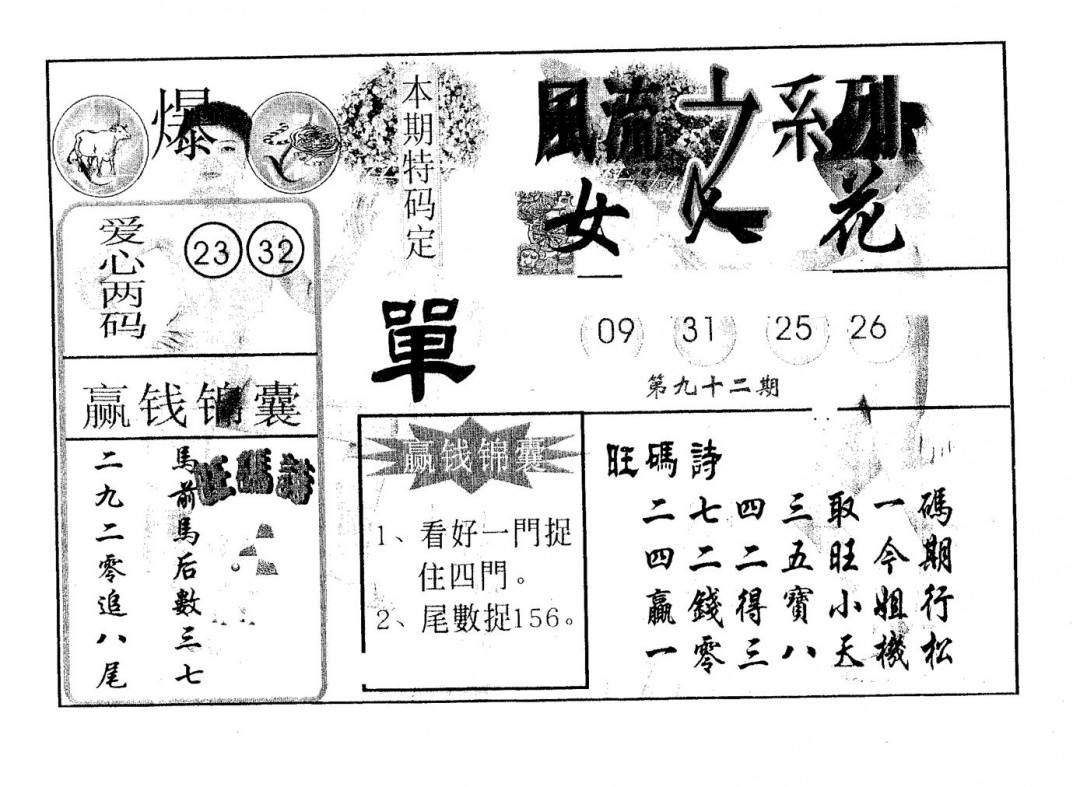 爆
爱心两码
23 32
赢钱锦囊
馬前馬后數三七
二九二零追八尾
旺碼詩
本期特码定
單
風流之系列
女 花
09 31 25 26
第九十二期
赢钱锦囊
1、看好一門捉
住四門。
2、尾數捉156。
旺碼詩
二七四三取一碼
四二二五旺今期
贏錢得寶小姐行
一零三八天機松